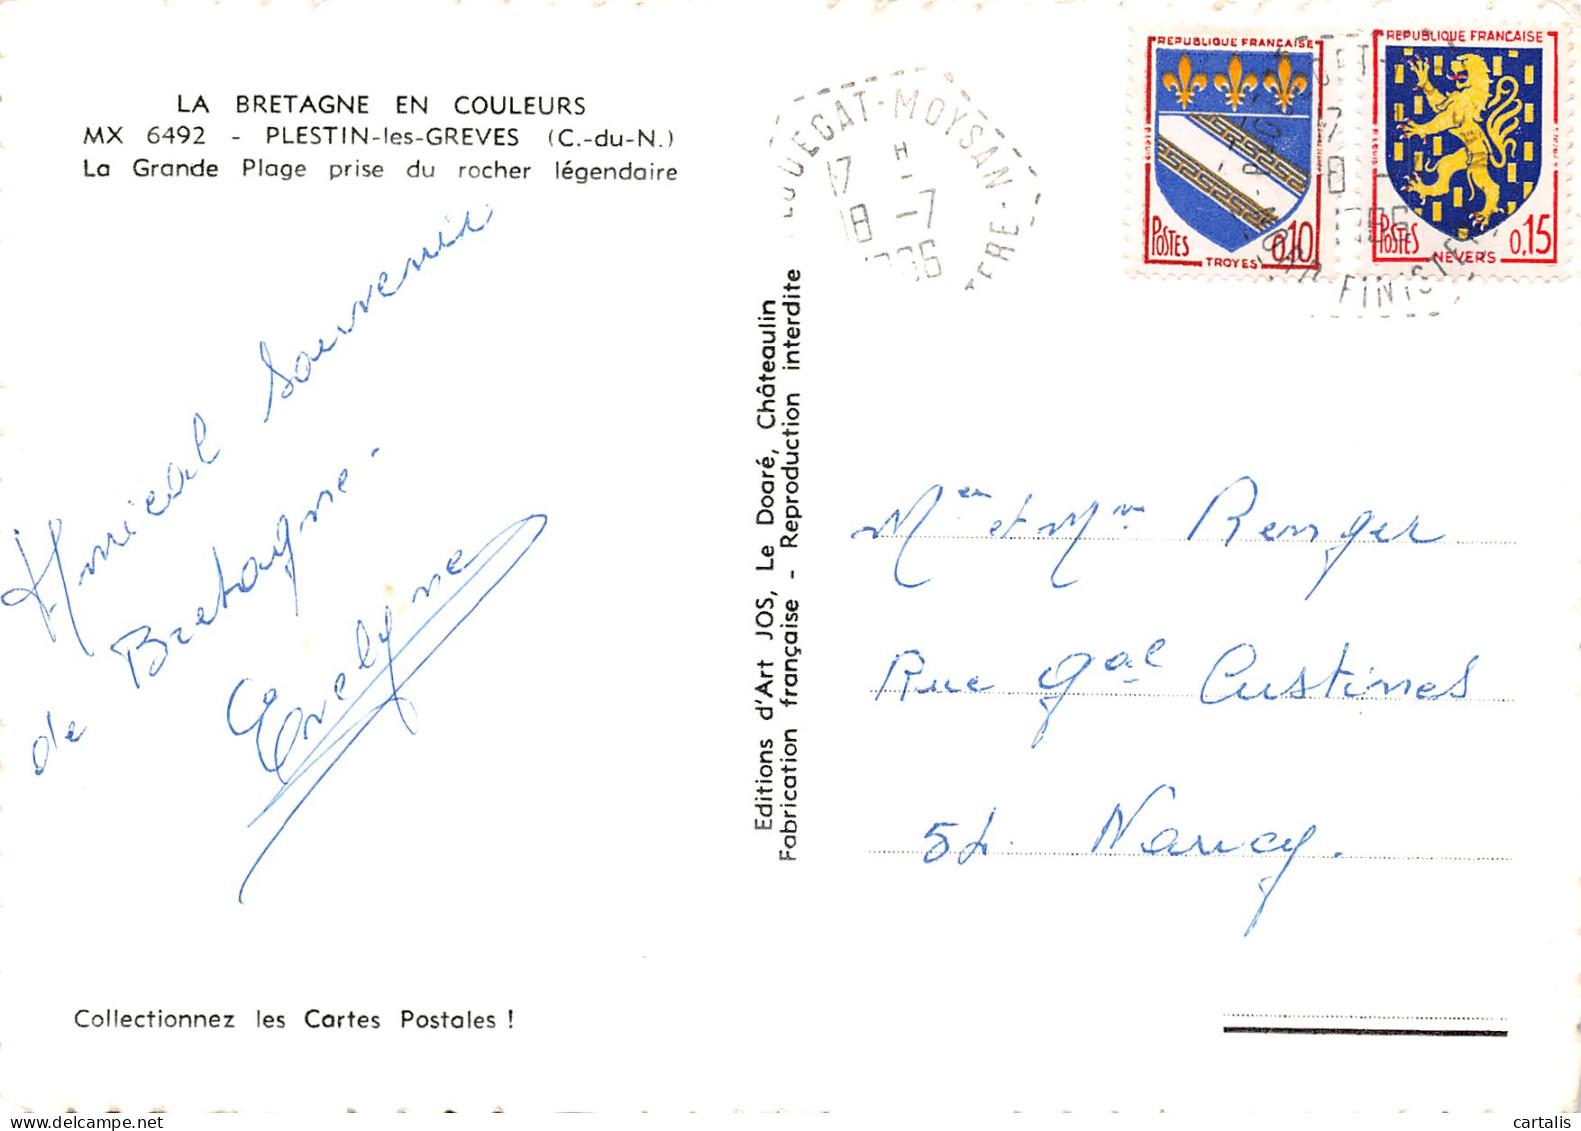 LA BRETAGNE EN COULEURS
MX 6492 - PLESTIN-les-GREVES (C.-du-N.)
La Grande Plage prise du rocher légendaire
Amical Souvenir
de Bretagne -
Evelyne
Collectionnez les Cartes Postales !
Editions d'Art JOS, Le Doaré, Châteaulin
Fabrication française - Reproduction interdite
GAT-MOYSAN
17 H
18 -7
REPUBLIQUE FRANÇAISE
POSTES 0,10
TROYES
REPUBLIQUE FRANCAISE
POSTES 0,15
NEVERS
FINISTERE
et Mme Renger
Rue Gal Custines
54. Nancy.
cartalis